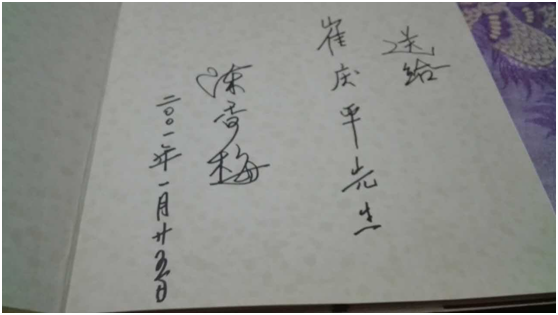 送给
崔庆平先生
陈香梅
二〇〇一年一月廿五日